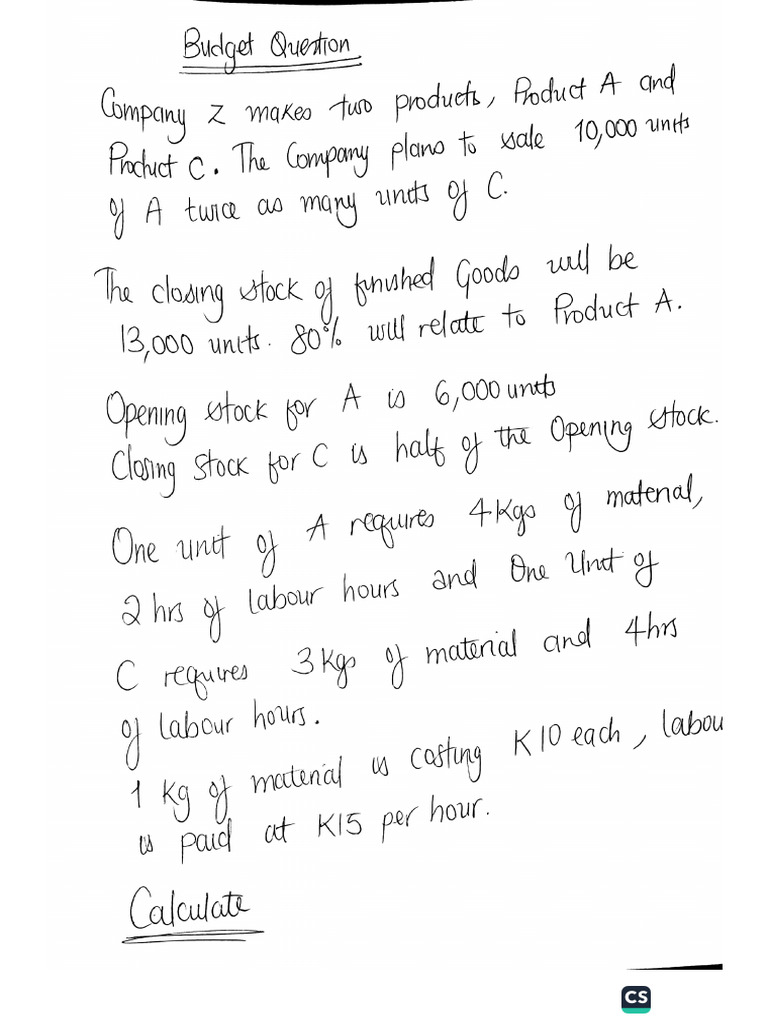 Budget Question
Company Z makes two products, Product A and
Product C. The Company plans to sale 10,000 units
of A twice as many units of C.
The closing stock of finished Goods will be
13,000 units. 80% will relate to Product A.
Opening stock for A is 6,000 units
Closing Stock for C is half of the Opening stock.
One unit of A requires 4Kgs of material,
2 hrs of labour hours and One Unit of
C requires 3Kgs of material and 4hrs
of labour hours.
1 Kg of material is costing K10 each, labou
is paid at K15 per hour.
Calculate
CS